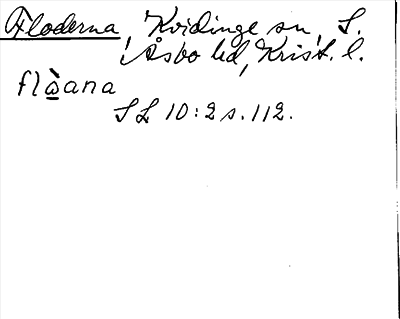 Floderna, Kvidinge sn, S.
Åsbo hd, Krist. l.
flὼ̱ana
SL 10:2 s. 112.